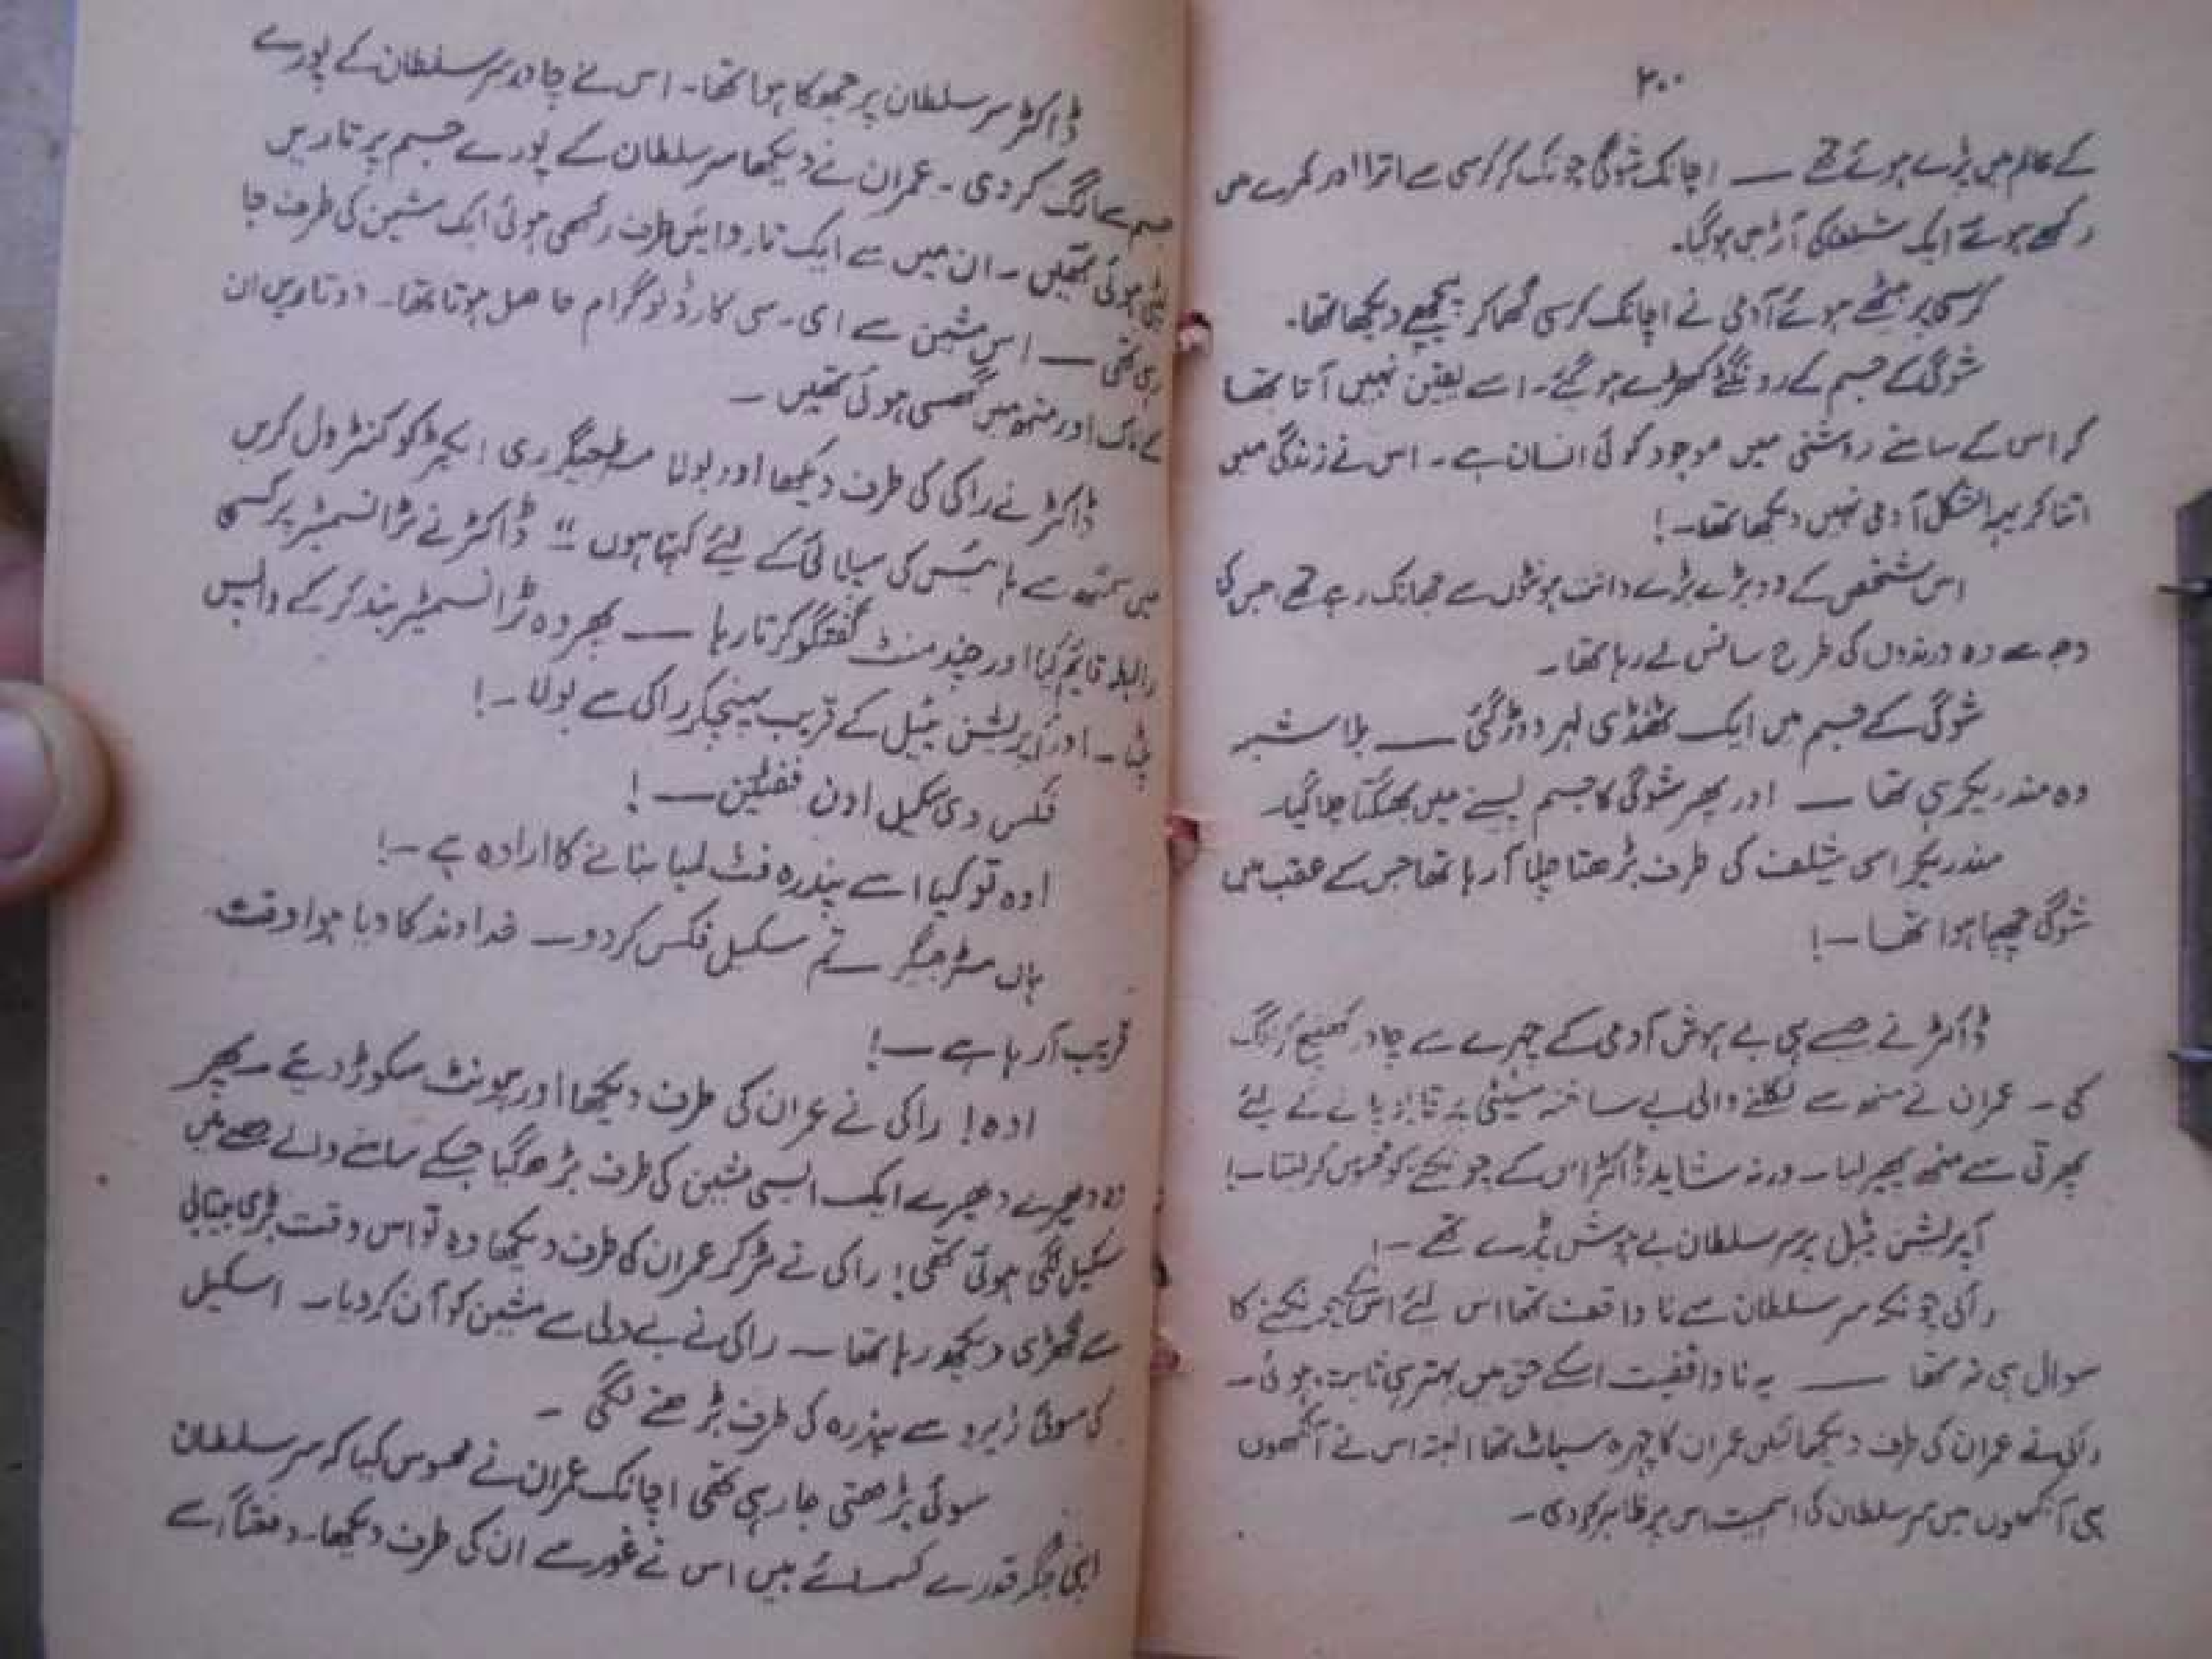 ۲۰۰
کے عالم میں پڑے ہوئے تھے — اچانک شوگی چونک کر کرسی سے اترا اور کمرے میں
رکھے ہوئے ایک شیلف کی آڑ میں ہو گیا۔
کرسی پر بیٹھے ہوئے آدمی نے اچانک کرسی گھما کر پیچھے دیکھا تھا۔
شوگی کے جسم کے رونگٹے کھڑے ہو گئے۔ اسے یقین نہیں آتا تھا
کہ اس کے سامنے روشنی میں موجود کوئی انسان ہے۔ اس نے زندگی میں
اتنا کریہہ الشکل آدمی نہیں دیکھا تھا۔!
اس شخص کے دو بڑے بڑے دانت ہونٹوں سے جھانک رہے تھے، جس کی
وجہ سے وہ درندوں کی طرح سانس لے رہا تھا۔
شوگی کے جسم میں ایک ٹھنڈی لہر دوڑ گئی — بلاشبہ
وہ مندریکر ہی تھا — اور پھر شوگی کا جسم پسینے میں بھیگتا چلا گیا۔
مندریکر اسی شیلف کی طرف بڑھتا چلا آ رہا تھا جس کے عقب میں
شوگی چھپا ہوا تھا —!
ڈاکٹر نے جیسے ہی بے ہوش آدمی کے چہرے سے چادر کھینچ کر الگ
کی۔ عمران نے منہ سے نکلنے والی بے ساختہ سیٹی پر قابو پانے کے لیئے
پھرتی سے منھ پھیر لیا۔ ورنہ شاید ڈاکٹر اس کے چونکنے کو محسوس کر لیتا۔!
آپریشن ٹیبل پر سر سلطان بے ہوش پڑے تھے۔!
راکی چونکہ سر سلطان سے ناواقف تھا اس لیئے اس کے چونکنے کا
سوال ہی نہ تھا — یہ ناواقفیت اسکے حق میں بہتر ہی ثابت ہوئی۔
راکی نے عمران کی طرف دیکھا لیکن عمران کا چہرہ سپاٹ تھا البتہ اس نے آنکھوں
ہی آنکھوں میں سر سلطان کی اہمیت اس پر ظاہر کر دی۔
ڈاکٹر سر سلطان پر جھکا ہوا تھا۔ اس نے چادر سر سلطان کے پورے
جسم سے الگ کر دی۔ عمران نے دیکھا سر سلطان کے پورے جسم پر تاریں
ہوئی تھیں۔ ان میں سے ایک تار دائیں طرف رکھی ہوئی ایک مشین کی طرف جا
رہی تھی — اس مشین سے ای۔سی کارڈیوگرام حاصل ہوتا تھا۔ دو تاریں ان
کے ناک اور منھ میں گھسی ہوئی تھیں۔
ڈاکٹر نے راکی کی طرف دیکھا اور بولا مسٹر جیگر ری ایکٹر کو کنٹرول کریں
میں سمتھ سے کی سپلائی کے لیئے کہتا ہوں" ڈاکٹر نے ٹرانسمیٹر پر کسی
رابطہ قائم کیا اور چند منٹ گفتگو کرتا رہا — پھر وہ ٹرانسمیٹر بند کر کے واپس
پلٹا۔ اور آپریشن ٹیبل کے قریب پہنچکر راکی سے بولا۔!
فکس دی سکیل اون ففٹین —!
اوہ تو کیا اسے پندرہ فٹ لمبا بنانے کا ارادہ ہے۔!
ہاں مسٹر جیگر تم سکیل فکس کر دو — خداوند کا دیا ہوا وقت
قریب آ رہا ہے —!
اوہ! راکی نے عمران کی طرف دیکھا اور ہونٹ سکوڑ دیئے۔ پھر
وہ دھیرے دھیرے ایک ایسی مشین کی طرف بڑھ گیا جسکے سامنے والے حصے میں
سکیل لگی ہوئی تھی! راکی نے مڑ کر عمران کی طرف دیکھا وہ تو اس وقت بڑی بیتابی
سے گھڑی دیکھ رہا تھا — راکی نے بے دلی سے مشین کو آن کر دیا۔ اسکیل
کی سوئی زیرو سے پندرہ کی طرف بڑھنے لگی۔
سوئی بڑھتی جا رہی تھی اچانک عمران نے محسوس کیا کہ سر سلطان
اپنی جگہ قدرے کسمسائے ہیں اس نے غور سے ان کی طرف دیکھا۔ دفعتاً اسے